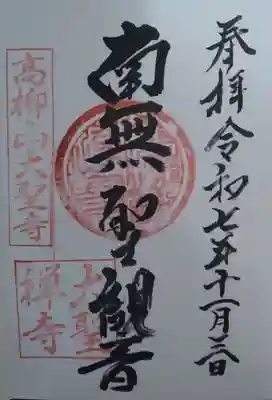 奉拝 令和七年十一月日
南無聖観音
高柳山大聖寺
大聖
禅寺